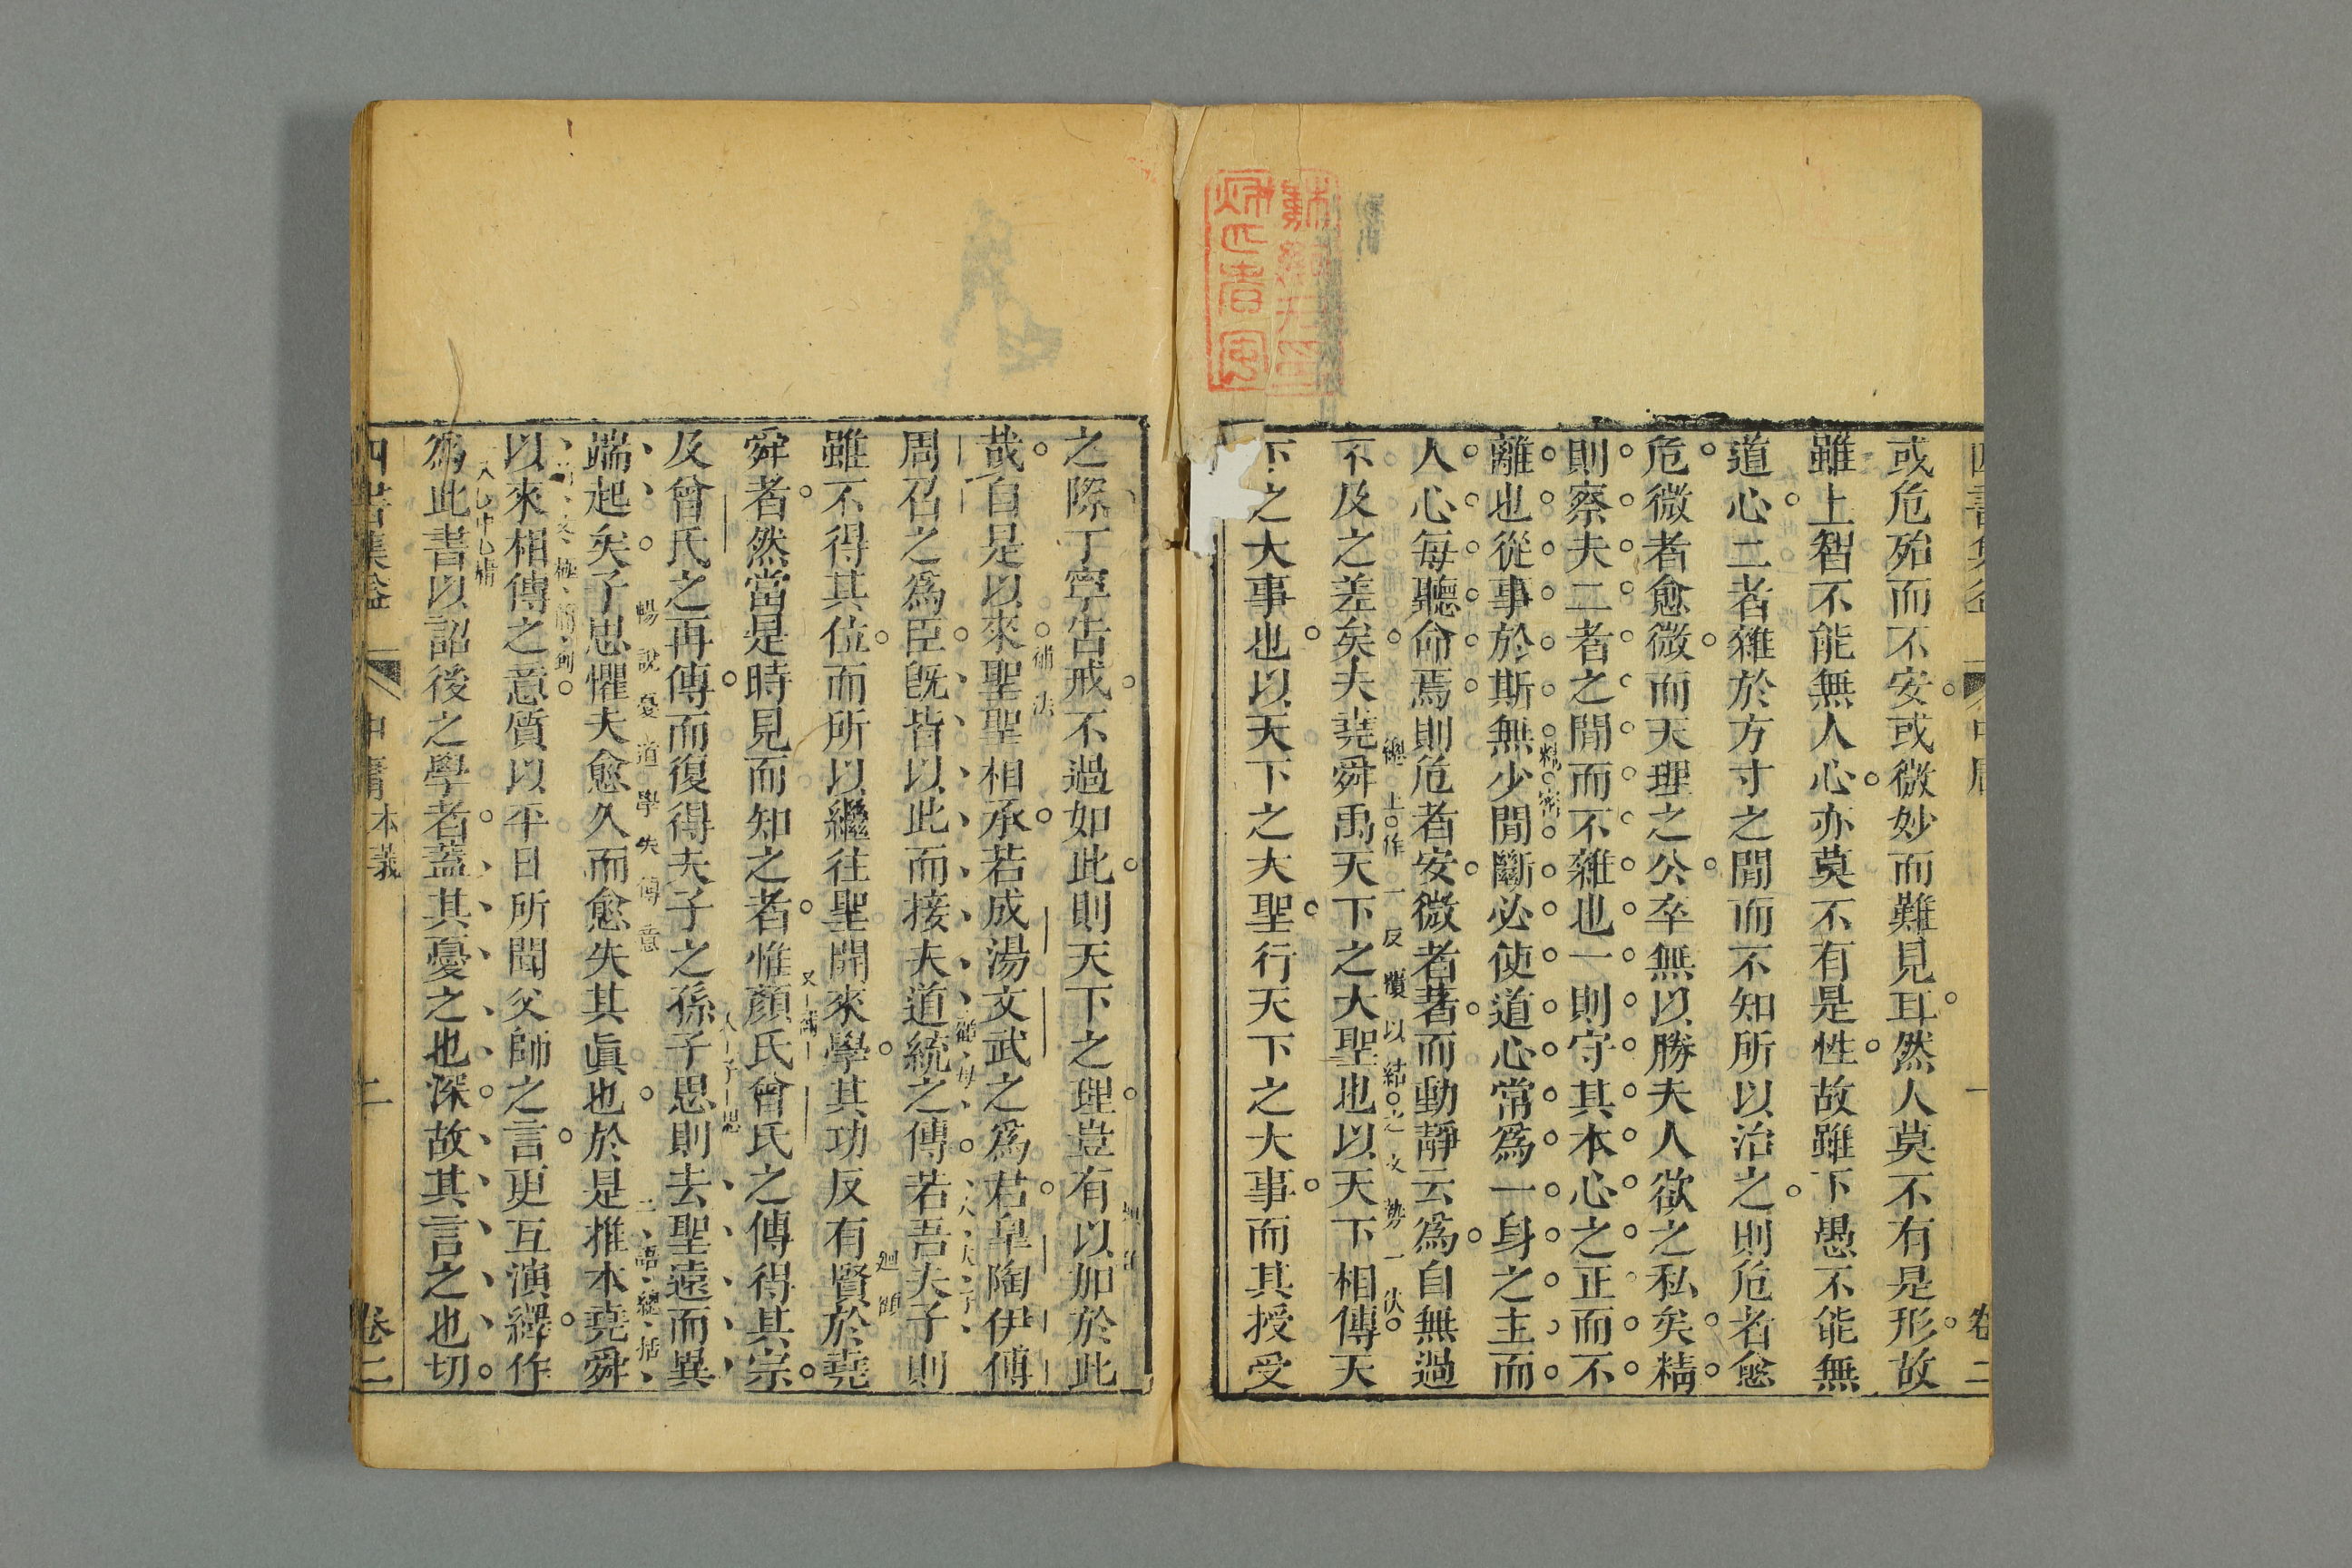 或危殆而不安或微妙而難見耳然人莫不有是形故
雖上智不能無人心亦莫不有是性故雖下愚不能無
道心二者雜於方寸之閒而不知所以治之則危者愈
危微者愈微而天理之公卒無以勝夫人欲之私矣精
則察夫二者之閒而不雜也一則守其本心之正而不
離也從事於斯無少閒斷必使道心常爲一身之主而
人心每聽命焉則危者安微者著而動靜云爲自無過
不及之差矣夫堯舜禹天下之大聖也以天下相傳天
下之大事也以天下之大聖行天下之大事而其授受
之際丁寧告戒不過如此則天下之理豈有以加於此
哉自是以來聖聖相承若成湯文武之爲君皐陶伊傅
周召之爲臣旣皆以此而接夫道統之傳若吾夫子則
雖不得其位而所以繼往聖開來學其功反有賢於堯
舜者然當是時見而知之者惟顏氏曾氏之傳得其宗
及曾氏之再傳而復得夫子之孫子思則去聖遠而異
端起矣子思懼夫愈久而愈失其眞也於是推本堯舜
以來相傳之意質以平日所聞父師之言更互演繹作
爲此書以詔後之學者蓋其憂之也深故其言之也切
中庸本義
卷二
精密
總上作一反覆以結之文勢一伏
補法
迴顧
又一講
入子思
暢說憂道學失傳意
二語總括